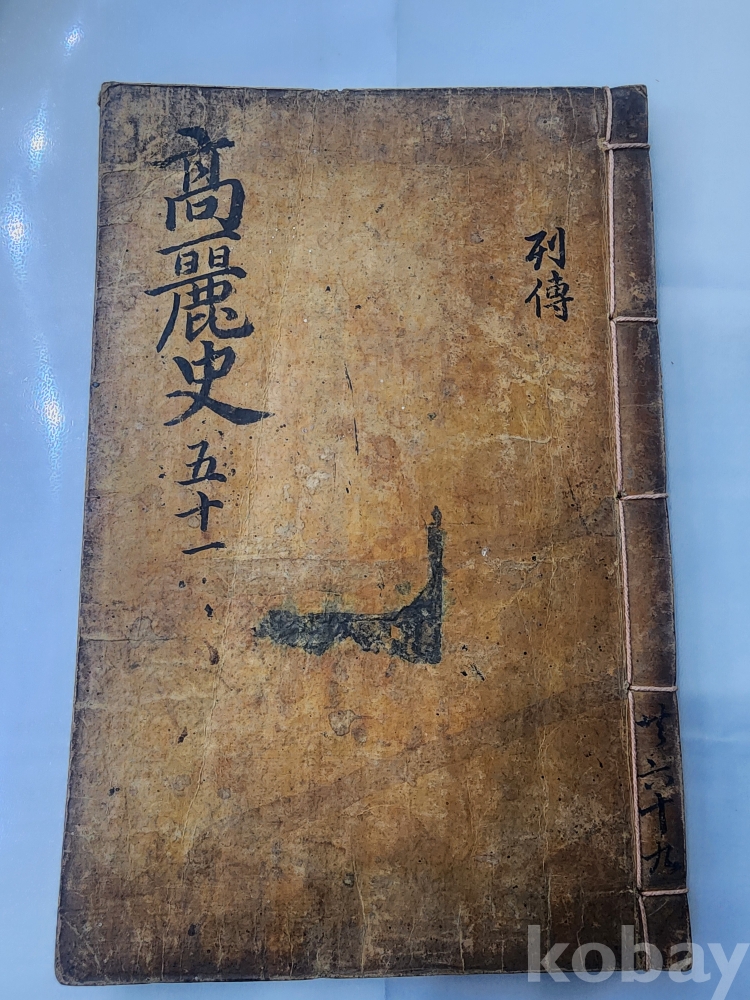 列傳
高麗史 五十一
共六十九
kobay